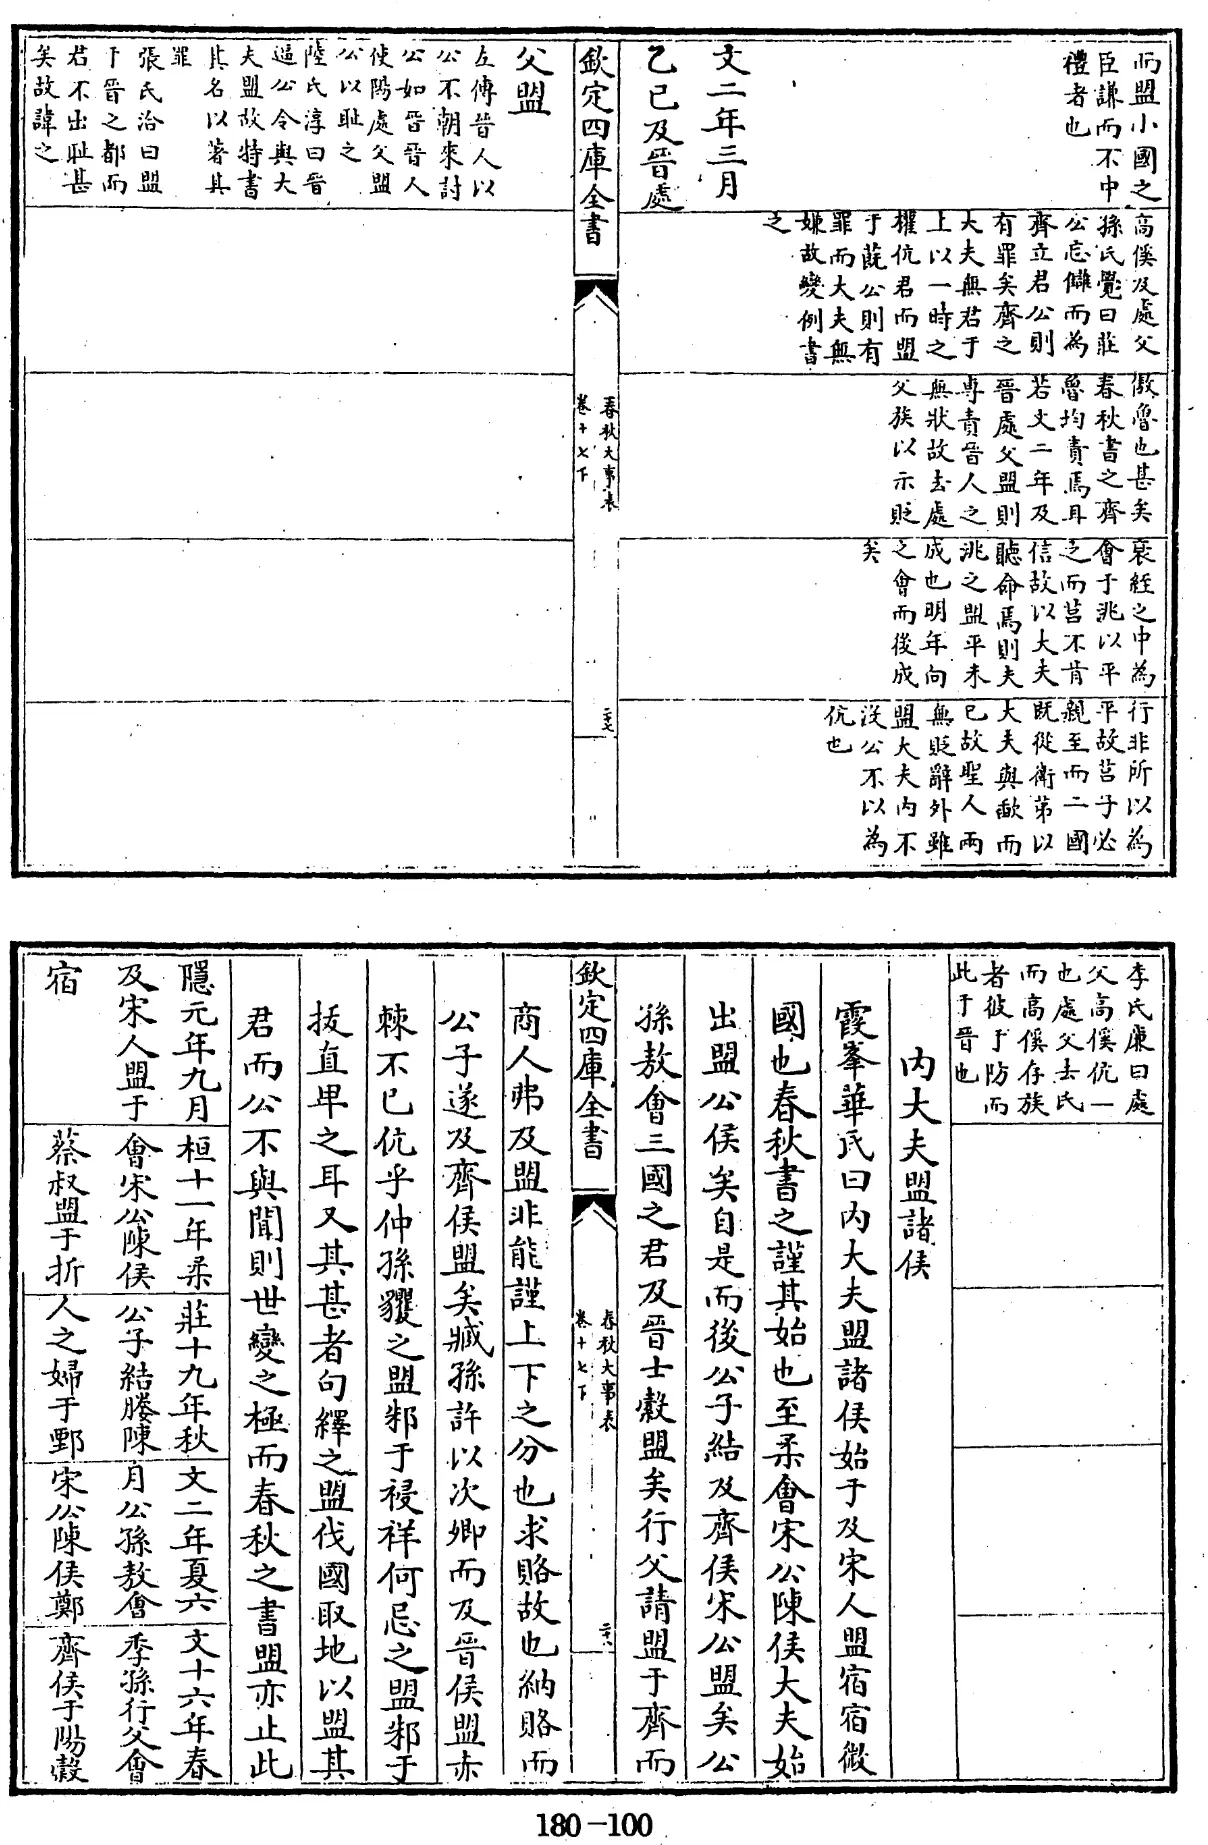 而盟小國之
臣謙而不中
禮者也
文二年三月
乙已及晉處
高傒及處父
孫氏覺曰莊
公忘讎而為
齊立君公則
有罪矣齊之
大夫無君于
上以一時之
權伉君而盟
于蔇公則有
罪而大夫無
嫌故變例書
之
傲魯也甚矣
春秋書之齊
魯均責焉耳
若文二年及
晉處父盟則
專責晉人之
無狀故去處
父族以示貶
衰絰之中為
會于洮以平
之而莒不肯
信故以大夫
聽命焉則夫
洮之盟平未
成也明年向
之會而後成
矣
行非所以為
平故莒子必
親至而二國
既從衛第以
大夫與歃而
已故聖人兩
無貶辭外雖
盟大夫内不
沒公不以為
伉也
欽定四庫全書
春秋大事表
卷十七下
二七
父盟
左傳晉人以
公不朝來討
公如晉晉人
使陽處父盟
公以耻之
陸氏淳曰晉
逼公令與大
夫盟故特書
其名以著其
罪
張氏洽曰盟
于晉之都而
君不出耻甚
矣故諱之
李氏廉曰處
父高傒伉一
也處父去氏
而高傒存族
者彼于防而
此于晉也
内大夫盟諸侯
霞峯華氏曰内大夫盟諸侯始于及宋人盟宿宿微
國也春秋書之謹其始也至柔會宋公陳侯大夫始
出盟公侯矣自是而後公子結及齊侯宋公盟矣公
孫敖會三國之君及晉士縠盟矣行父請盟于齊而
欽定四庫全書
春秋大事表
卷十七下
二八
商人弗及盟非能謹上下之分也求賂故也納賂而
公子遂及齊侯盟矣臧孫許以次卿而及晉侯盟赤
棘不已伉乎仲孫貜之盟邾于祲祥何忌之盟邾于
拔直卑之耳又其甚者句繹之盟伐國取地以盟其
君而公不與聞則世變之極而春秋之書盟亦止此
隱元年九月
及宋人盟于
宿
桓十一年柔
會宋公陳侯
蔡叔盟于折
莊十九年秋
公子結媵陳
人之婦于鄄
文二年夏六
月公孫敖會
宋公陳侯鄭
文十六年春
季孫行父會
齊侯于陽穀
180-100